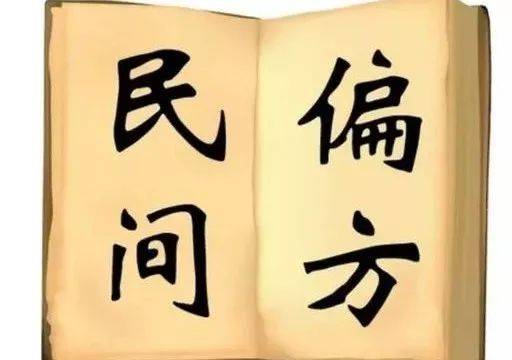 民间
偏方